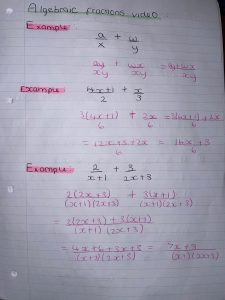 Algebraic fractions video.
Example
a/x + w/y
ay/xy + wx/xy = ay+wx/xy
Example
4x+1/2 + x/3
3(4x+1)/6 + 2x/6 = 3(4x+1)+2x/6
= 12x+3+2x/6 = 14x+3/6
Example
2/x+1 + 3/2x+3
2(2x+3)/(x+1)(2x+3) + 3(x+1)/(x+1)(2x+3)
= 2(2x+3)+3(x+1)/(x+1)(2x+3)
= 4x+6+3x+3/(x+1)(2x+3) = 7x+9/(x+1)(2x+3)